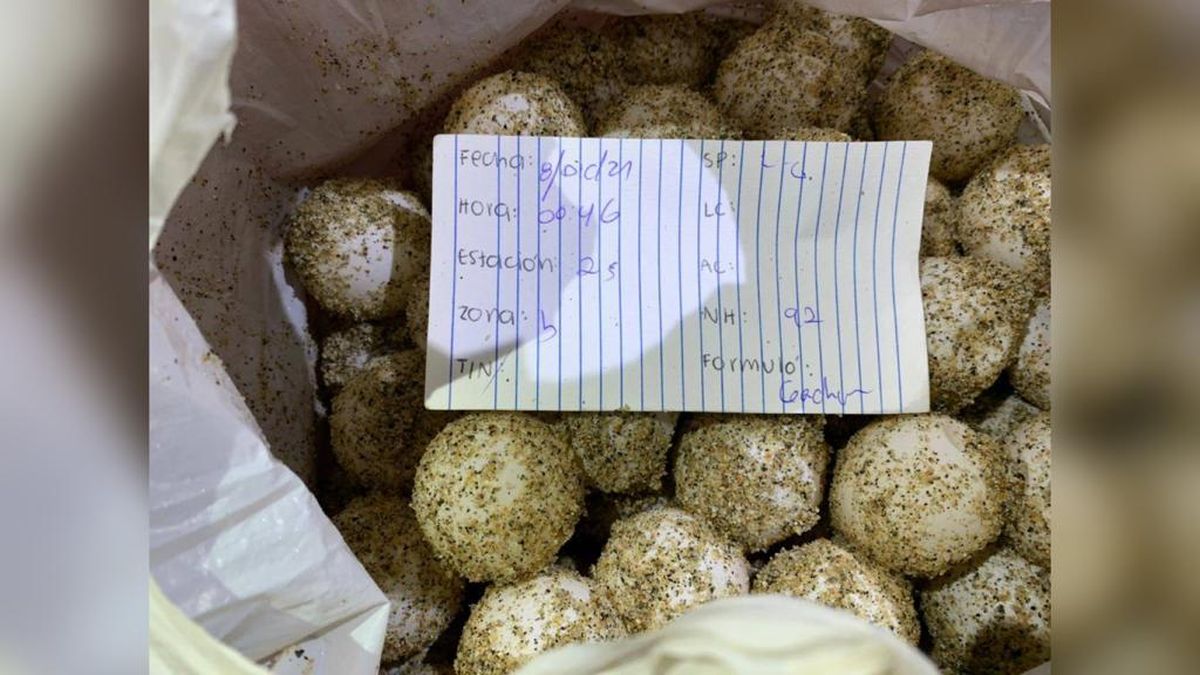 Fecha: 8/dic/21
Hora: 00:46
Estación: 25
Zona: b
TIN:
SP: L.C.
LC:
AC:
NH: 92
Formuló: